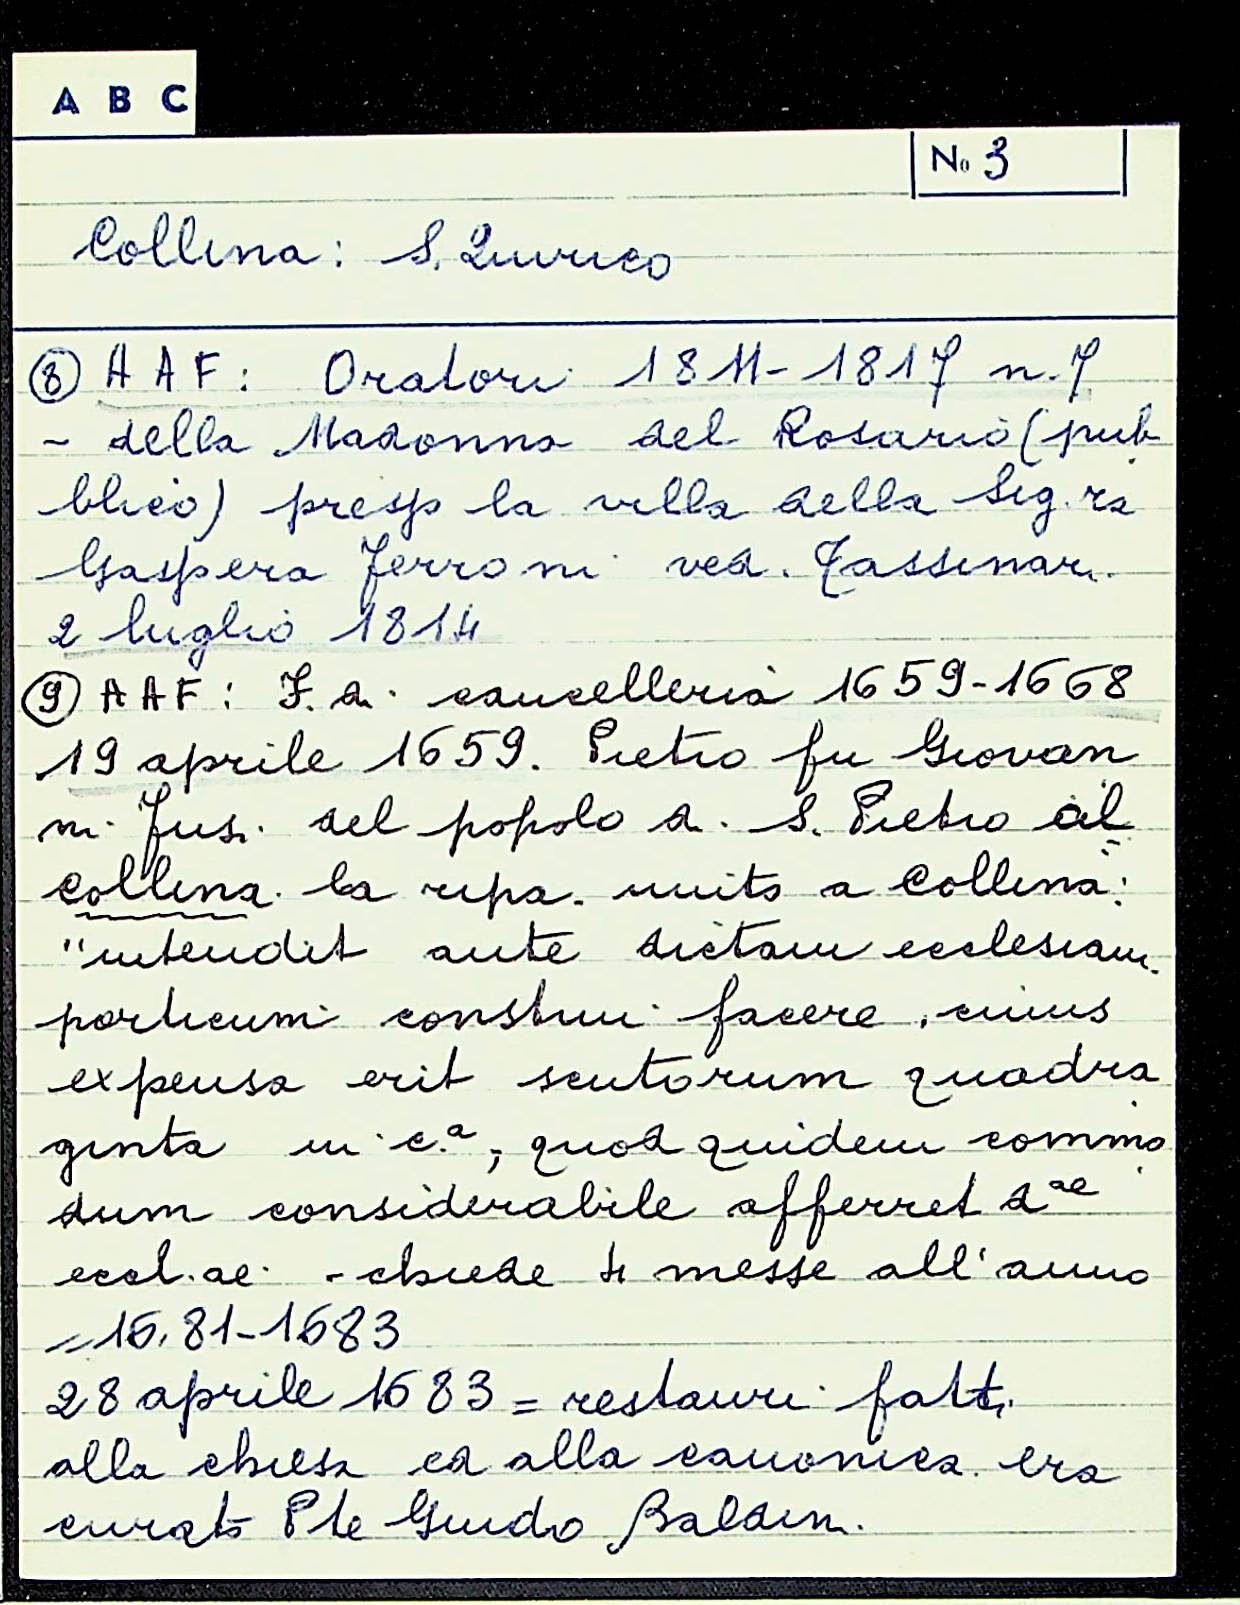 A B C
No 3
Collina: S. Quirico
⑧ AAF: Oratori 1811-1817 n. 7
- della Madonna del Rosario (pub
blico) presso la villa della Sig.ra
Gaspera Ferroni ved. Tassinari.
2 luglio 1814
⑨ AAF: F. di cancelleria 1659-1668
19 aprile 1659. Pietro fu Giovan
ni Fusi del popolo di S. Pietro al
Collina. la ripa. unito a Collina:
"intendit ante dictam ecclesiam
porticum construi facere, cuius
expensa erit scutorum quadra
ginta in c.ª, quod quidem commo
dum considerabile afferret dae
eccl.ae - chiede 4 messe all'anno
= 16.81-1683
28 aprile 1683 = restauri fatti
alla chiesa ed alla canonica. era
curato Pte Guido Baldini.